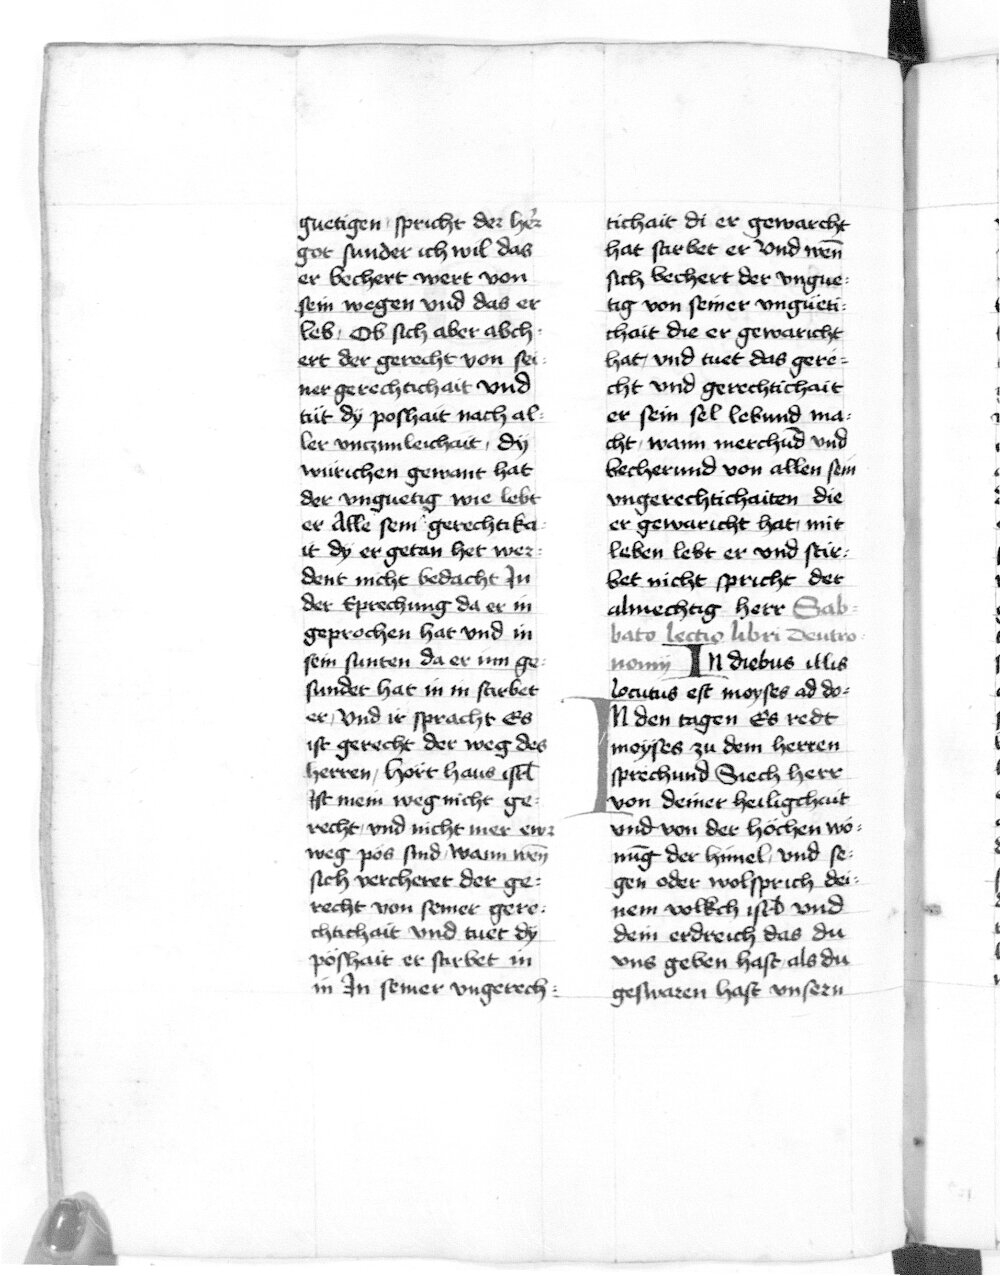 guetigen / spricht der her̄
got sunder ich wil das
er bechert wert von
sein wegen vnd das er
leb / Ob sich aber abch-
ert der gerecht von sei-
ner gerechtichait vnd
tüt dy poshait nach al-
ler vnczimleichait / dy
würichen gewant hat
der vnguetig wie lebt
er Alle sein gerechtika-
it dy er getan het wer-
dent nicht bedacht In
der Eprechung da er in
geprochen hat vnd in
sein sunten da er inn ge-
sundet hat in in stirbet
er / Vnd ir spracht Es
ist gerecht der weg des
herren / Hört haus isrl
Ist mein weg nicht ge-
recht / vnd nicht mer ewr
weg pös sind / wann wen̄
sich vercheret der ge-
recht von seiner gere-
chtichait vnd tuet dy
poshait er stirbet in
in In seiner vngerech-
tichait di er gewarcht
hat stirbet er Vnd wen̄
sich bechert der vngue-
tig von seiner vngüeti-
chait die er gewaricht
hat / vnd tuet das gere-
cht vnd gerechtichait
er sein sel lekund ma-
cht / wann merchūd vnd
becherund von allen sein
vngerechtichaiten die
er gewaricht hat / mit
leben lebt er vnd stir-
bet nicht spricht der
almechtig herr Sab-
bato lectio libri Deutro-
nomy In diebus illis
locutus est moyses ad do-
IN den tagen Es redt
moyses zu dem herren
sprechund Siech herr
von deiner heiligchait
vnd von der höchen wo-
nūg der himel / vnd se-
gen oder wolsprich dei-
nem volkch isrl vnd
dein erdreich das du
vns geben hast als du
geswaren hast vnsern